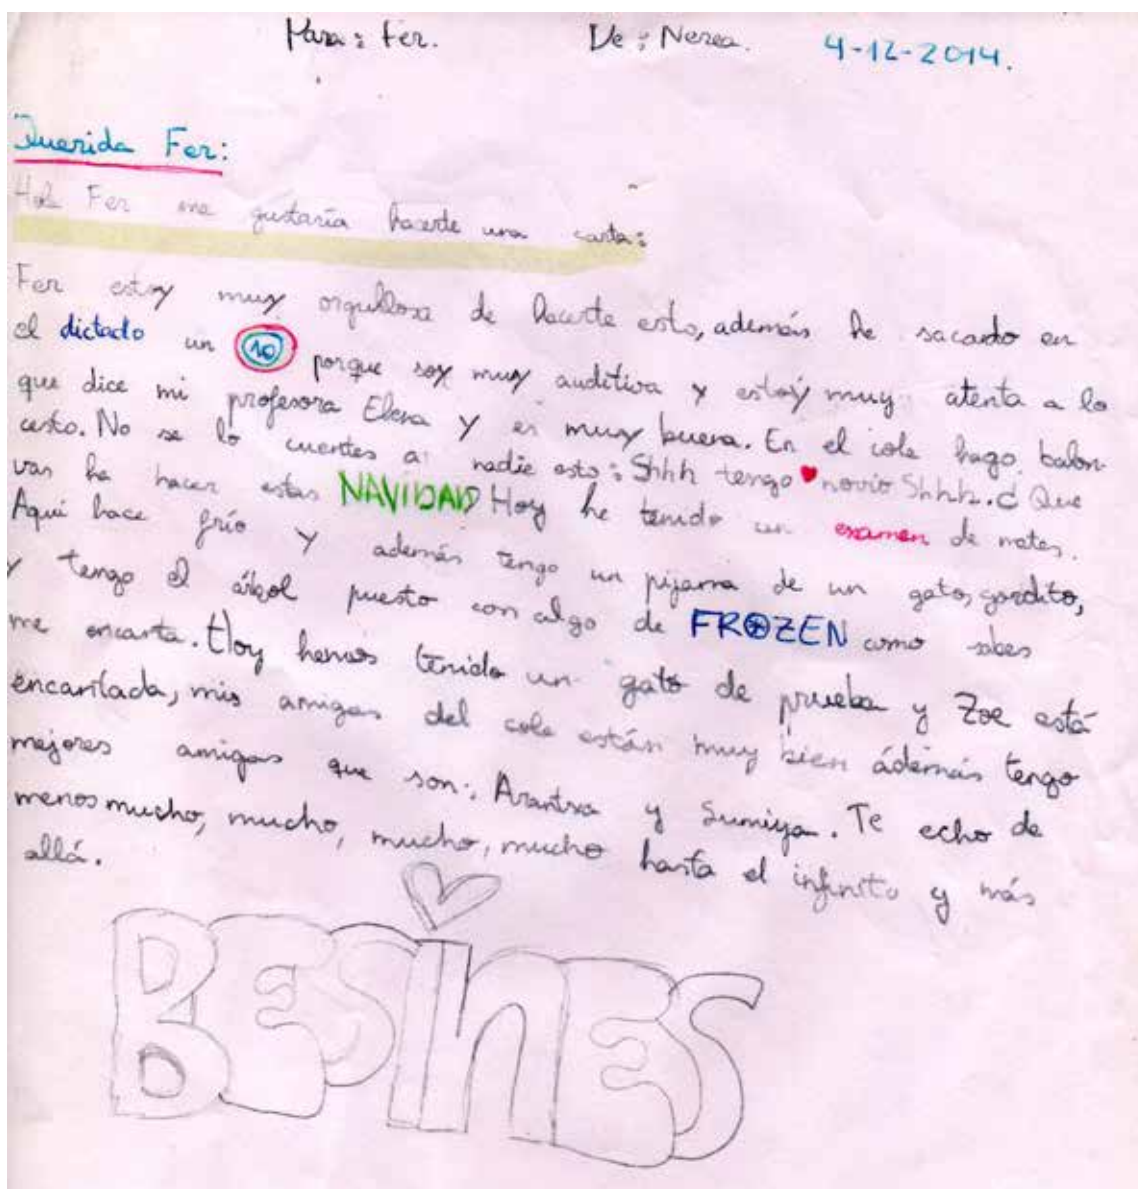 Para: Fer. De: Nerea. 4-12-2014.
Querida Fer:
Hola Fer me gustaría hacerte una carta:
Fer estoy muy orgullosa de hacerte esto, además he sacado en
el dictado un 10 porque soy muy auditiva y estoy muy atenta a lo
que dice mi profesora Elena y es muy buena. En el cole hago balon-
cesto. No se lo cuentes a nadie esto: Shhh tengo ♥ novio Shhh. ¿Que
vas ha hacer estas NAVIDAD Hoy he tenido un examen de mates.
Aquí hace frío y además tengo un pijama de un gato, gordito,
y tengo el árbol puesto con algo de FROZEN como sabes
me encanta. Hoy hemos tenido un gato de prueba y Zoe está
encantada, mis amigas del cole están muy bien ádemás tengo
mejores amigas que son: Arantxa y Sumiya. Te echo de
menos mucho, mucho, mucho, mucho hasta el infinito y más
allá.
BESINES